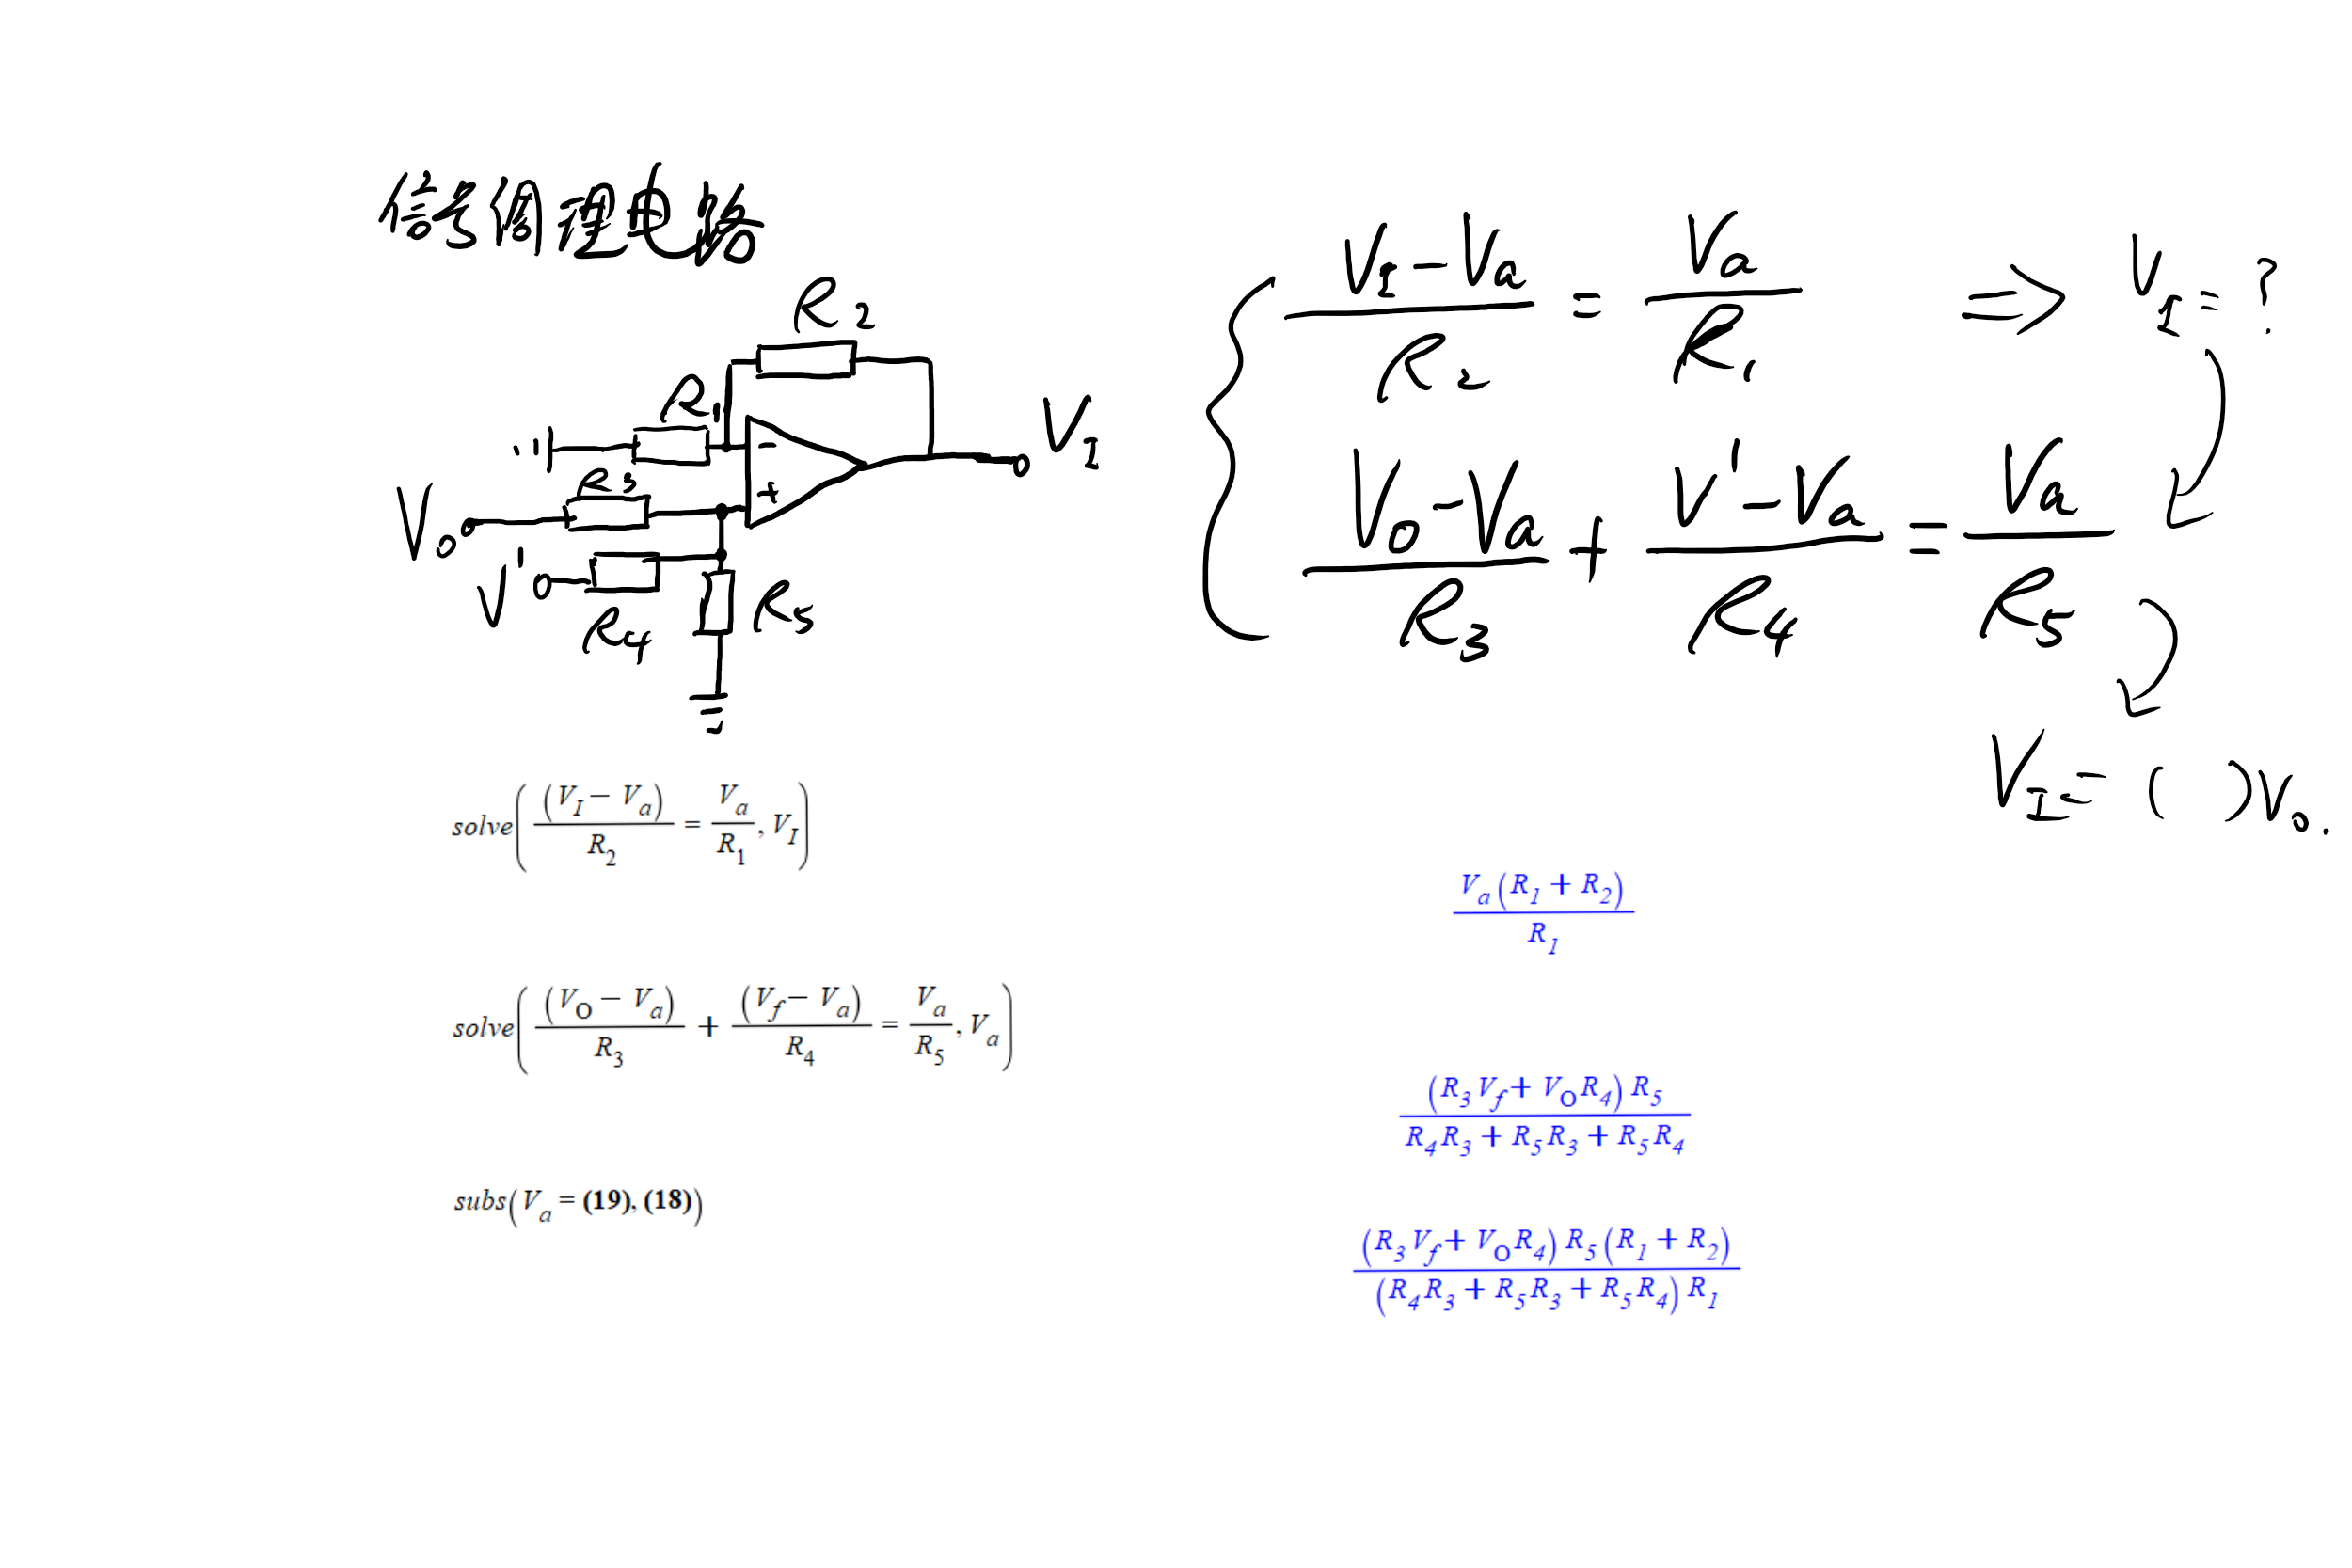 信号调理电路
R2
R1
VI
R3
Vo
V'
R4
R5
(VI - Va)/R2 = Va/R1 ⇒ VI = ?
(Vo - Va)/R3 + (V' - Va)/R4 = Va/R5
VI = ( )Vo.
solve((VI − Va)/R2 = Va/R1, VI)
Va(R1 + R2)/R1
solve((VO − Va)/R3 + (Vf − Va)/R4 = Va/R5, Va)
(R3Vf + VOR4)R5/(R4R3 + R5R3 + R5R4)
subs(Va = (19), (18))
(R3Vf + VOR4)R5(R1 + R2)/((R4R3 + R5R3 + R5R4)R1)